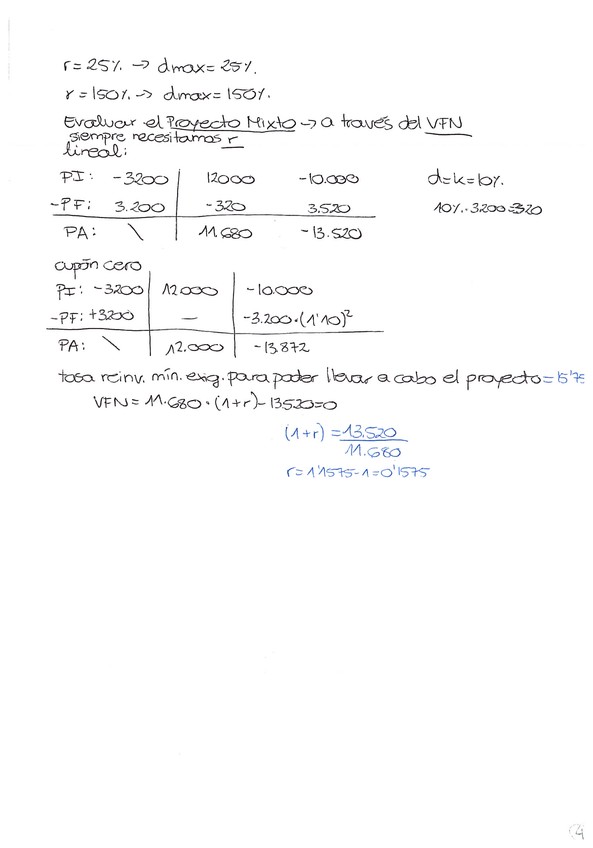 r = 25%. -> dmax = 25%.
r = 150%. -> dmax = 150%.
Evaluar el Proyecto Mixto -> a través del VFN
siempre necesitamos r
lineal:
PI: -3200 12000 -10.000 d=k=10%.
-PF: 3.200 -320 3.520 10%.·3.200=320
PA: \ 11.680 -13.520
cupón cero
PI: -3200 12.000 -10.000
-PF: +3200 — -3.200·(1'10)²
PA: \ 12.000 -13.872
tasa reinv. mín. exig. para poder llevar a cabo el proyecto = 15'75
VFN = 11.680·(1+r)-13.520=0
(1+r) = 13.520
11.680
r = 1'1575-1=0'1575
4